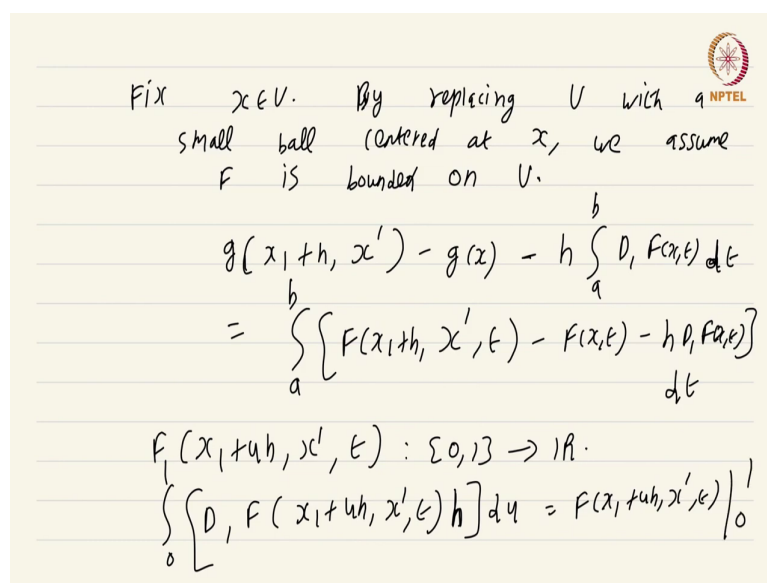 Fix x ∈ U. By replacing U with a
NPTEL
small ball centered at x, we assume
F is bounded on U.
g(x₁+h, x') - g(x) - h ∫ₐᵇ D₁ F(x,t) dt
= ∫ₐᵇ [F(x₁+h, x', t) - F(x,t) - h D₁ F(x,t)] dt
F(x₁+uh, x', t) : [0,1] → ℝ.
∫₀¹ [D₁ F(x₁+uh, x', t) h] du = F(x₁+uh, x', t) |₀¹